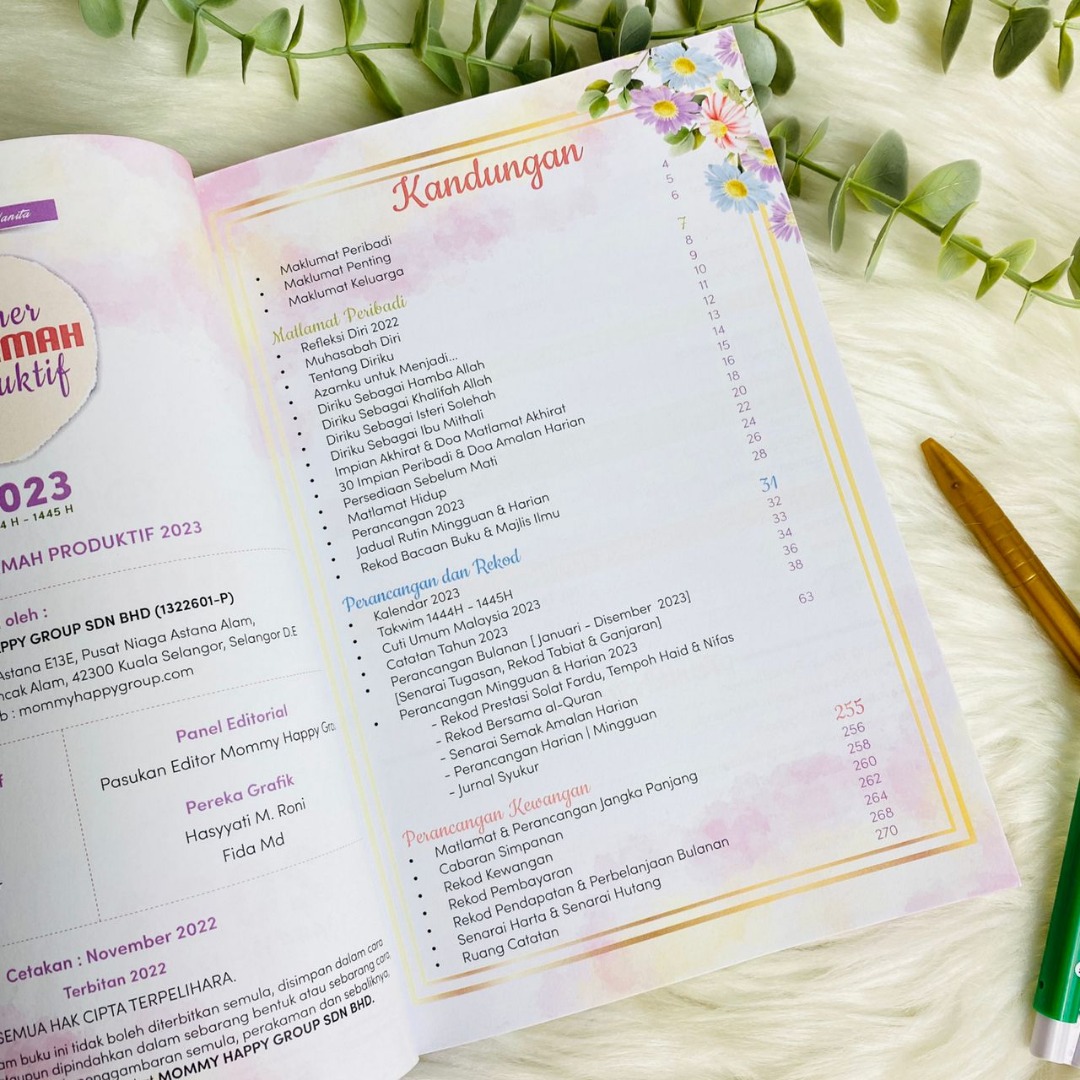 ner
MAH
uktif
023
4 H - 1445 H
MAH PRODUKTIF 2023
oleh :
PPY GROUP SDN BHD (1322601-P)
Astana E13E, Pusat Niaga Astana Alam,
ncak Alam, 42300 Kuala Selangor, Selangor D.E
b : mommyhappygroup.com
Panel Editorial
Pasukan Editor Mommy Happy Gro
Pereka Grafik
Hasyyati M. Roni
Fida Md
Cetakan : November 2022
Terbitan 2022
SEMUA HAK CIPTA TERPELIHARA.
am buku ini tidak boleh diterbitkan semula, disimpan dalam cara
laupun dipindahkan dalam sebarang bentuk atau sebarang cara,
nggambaran semula, perakaman dan sebaliknya,
MOMMY HAPPY GROUP SDN BHD.
Kandungan
• Maklumat Peribadi 4
• Maklumat Penting 5
• Maklumat Keluarga 6
Matlamat Peribadi 7
• Refleksi Diri 2022 8
• Muhasabah Diri 9
• Tentang Diriku 10
• Azamku untuk Menjadi... 11
• Diriku Sebagai Hamba Allah 12
• Diriku Sebagai Khalifah Allah 13
• Diriku Sebagai Isteri Solehah 14
• Diriku Sebagai Ibu Mithali 15
• Impian Akhirat & Doa Matlamat Akhirat 16
• 30 Impian Peribadi & Doa Amalan Harian 18
• Persediaan Sebelum Mati 20
• Matlamat Hidup 22
• Perancangan 2023 24
• Jadual Rutin Mingguan & Harian 26
• Rekod Bacaan Buku & Majlis Ilmu 28
Perancangan dan Rekod 31
• Kalendar 2023 32
• Takwim 1444H - 1445H 33
• Cuti Umum Malaysia 2023 34
• Catatan Tahun 2023 36
• Perancangan Bulanan [ Januari - Disember 2023] 38
[Senarai Tugasan, Rekod Tabiat & Ganjaran]
• Perancangan Mingguan & Harian 2023 63
- Rekod Prestasi Solat Fardu, Tempoh Haid & Nifas
- Rekod Bersama al-Quran
- Senarai Semak Amalan Harian
- Perancangan Harian | Mingguan
- Jurnal Syukur
Perancangan Kewangan 255
• Matlamat & Perancangan Jangka Panjang 256
• Cabaran Simpanan 258
• Rekod Kewangan 260
• Rekod Pembayaran 262
• Rekod Pendapatan & Perbelanjaan Bulanan 264
• Senarai Harta & Senarai Hutang 268
• Ruang Catatan 270